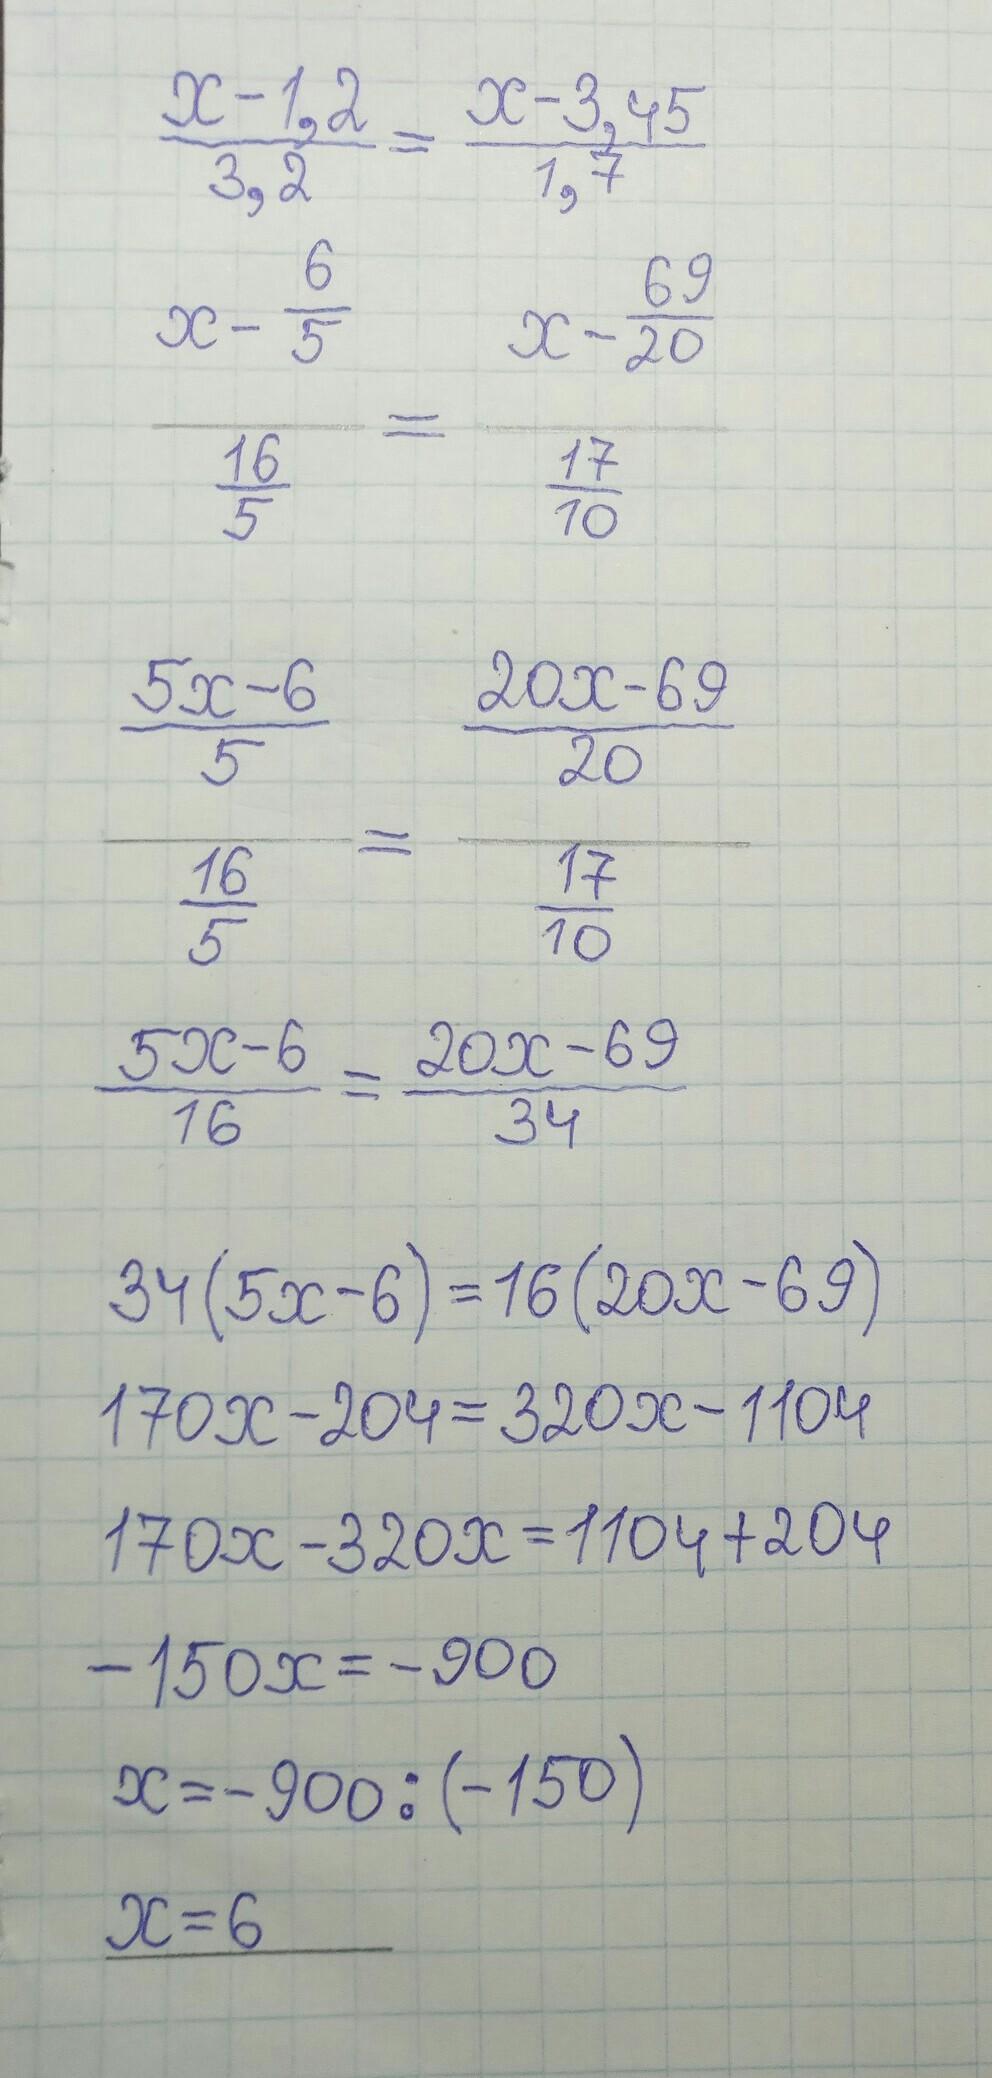 x-1,2 = x-3,45
3,2 1,7
x - 6/5 x - 69/20
=
16/5 17/10
5x-6 20x-69
5 20
=
16/5 17/10
5x-6 = 20x-69
16 34
34(5x-6)=16(20x-69)
170x-204=320x-1104
170x-320x=1104+204
-150x=-900
x=-900:(-150)
x=6